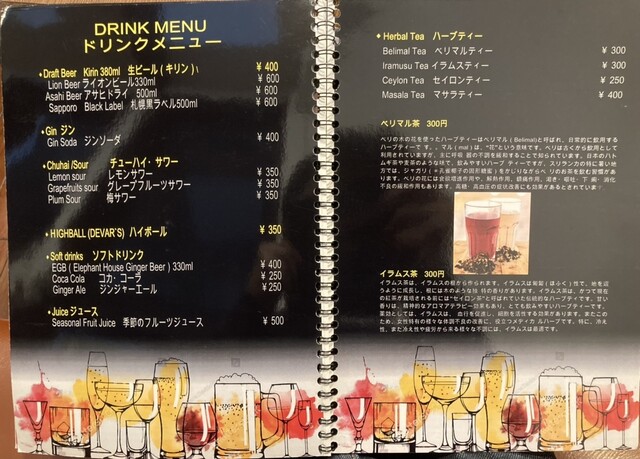 DRINK MENU
ドリンクメニュー
・Draft Beer Kirin 380ml 生ビール ( キリン ) ¥ 400
Lion Beer ライオンビール330ml ¥ 600
Asahi Beer アサヒドライ 500ml ¥ 600
Sapporo Black Label 札幌黒ラベル500ml ¥ 600
・Gin ジン
Gin Soda ジンソーダ ¥ 400
・Chuhai /Sour チューハイ・サワー
Lemon sour レモンサワー ¥ 350
Grapefruits sour グレープフルーツサワー ¥ 350
Plum Sour 梅サワー ¥ 350
・HIGHBALL (DEVAR'S) ハイボール ¥ 350
・Soft drinks ソフトドリンク
EGB ( Elephant House Ginger Beer ) 330ml ¥ 400
Coca Cola コカ・コーラ ¥ 250
Ginger Ale ジンジャーエール ¥ 250
・Juice ジュース
Seasonal Fruit Juice 季節のフルーツジュース ¥ 500
・Herbal Tea ハーブティー
Belimal Tea ベリマルティー ¥ 300
Iramusu Tea イラムスティー ¥ 300
Ceylon Tea セイロンティー ¥ 250
Masala Tea マサラティー ¥ 400
ベリマル茶 300円
ベリの木の花を使ったハーブティーはベリマル (Belimal)と呼ばれ、日常的に飲用する
ハーブティーです。。マル ( mal )は、"花"という意味です。ベリは古くから飲用として
利用されていますが、主に呼吸器の不調を緩和することで知られています。日本のハト
ムギ茶や麦茶のような味で、飲みやすいハーブティーですが、スリランカの特に暑い地
方では、ジャガリ(=孔雀椰子の固形糖蜜)をかじりながらベリのお茶を飲む習慣があ
ります。ベリの花には食欲増進作用や、解熱作用、鎮痛作用、渇き・嘔吐・下痢・消化
不良の緩和作用もあります。高糖、高血圧の症状改善にも効果があるとされていま
イラムス茶 300円
イラムス茶は、イラムスの根から作られます。イラムスは匍匐 ( ほふく ) 性で、地を這
うように成長し、根には木のような独特の香りがあります。イラムス茶は、かつて現在
の紅茶が栽培される前には"セイロン茶"と呼ばれていた伝統的なハーブティーです。甘い
香りは、精神的なアロマテラピー効果もあり、とても飲みやすいハーブティーです。
薬効としては、イラムスは、血行を促進し、細胞を活性する効果があります。またこのた
め、女性特有の様々な体調不良の改善に、役立つメディカルハーブです。特に、冷え
性、また冷え性や疲労から来る様々な不調には、イラムスは最適です。